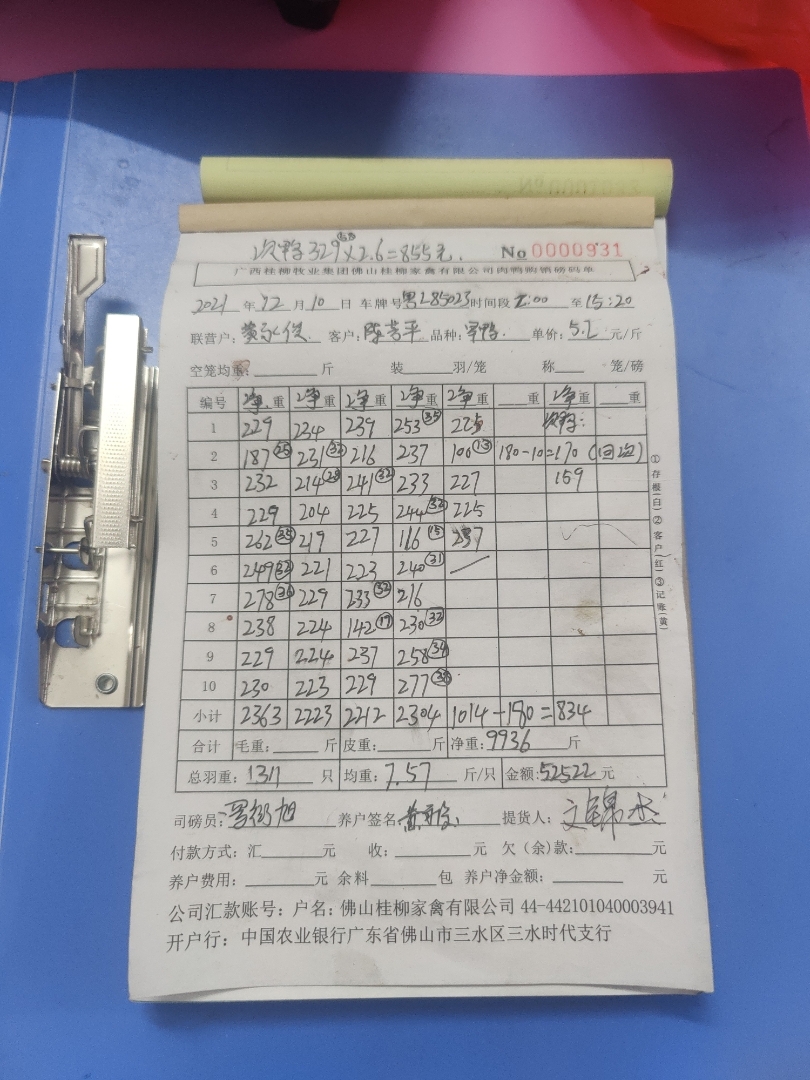 次鸭 329 × 2.6 = 855元.
No 0000931
广西桂柳牧业集团佛山桂柳家禽有限公司肉鸭购销磅码单
2021年12月10日 车牌号粤L85023时间段 至15:20
联营户: 客户:陈芳平 品种: 单价:5.2元/斤
空笼均重: 斤 装 羽/笼 称 笼/磅
编号 净重 净重 净重 净重 净重 重 净重 重
1 229 234 239 253(35) 225 次鸭:
2 187(25) 231(32) 216 237 100(13) 180-10=170 (回边)
3 232 214(28) 241(32) 233 227 159
4 229 204 225 244(32) 225
5 262(35) 219 227 116(15) 237
6 249(32) 221 223 240(31)
7 278(36) 229 233(32) 216
8 238 224 142(19) 230(32)
9 229 224 237 258(34)
10 230 223 229 277(36)
小计 2363 2223 2212 2304 1014-180=834
合计 毛重: 斤 皮重: 斤 净重:9936斤
总羽重:1311只 均重:7.57斤/只 金额:52522元
司磅员: 养户签名: 提货人:文锦杰
付款方式: 汇 元 收: 元 欠(余)款: 元
养户费用: 元 余料 包 养户净金额: 元
公司汇款账号: 户名: 佛山桂柳家禽有限公司 44-442101040003941
开户行: 中国农业银行广东省佛山市三水区三水时代支行
①存根(白)②客户(红)③记账(黄)